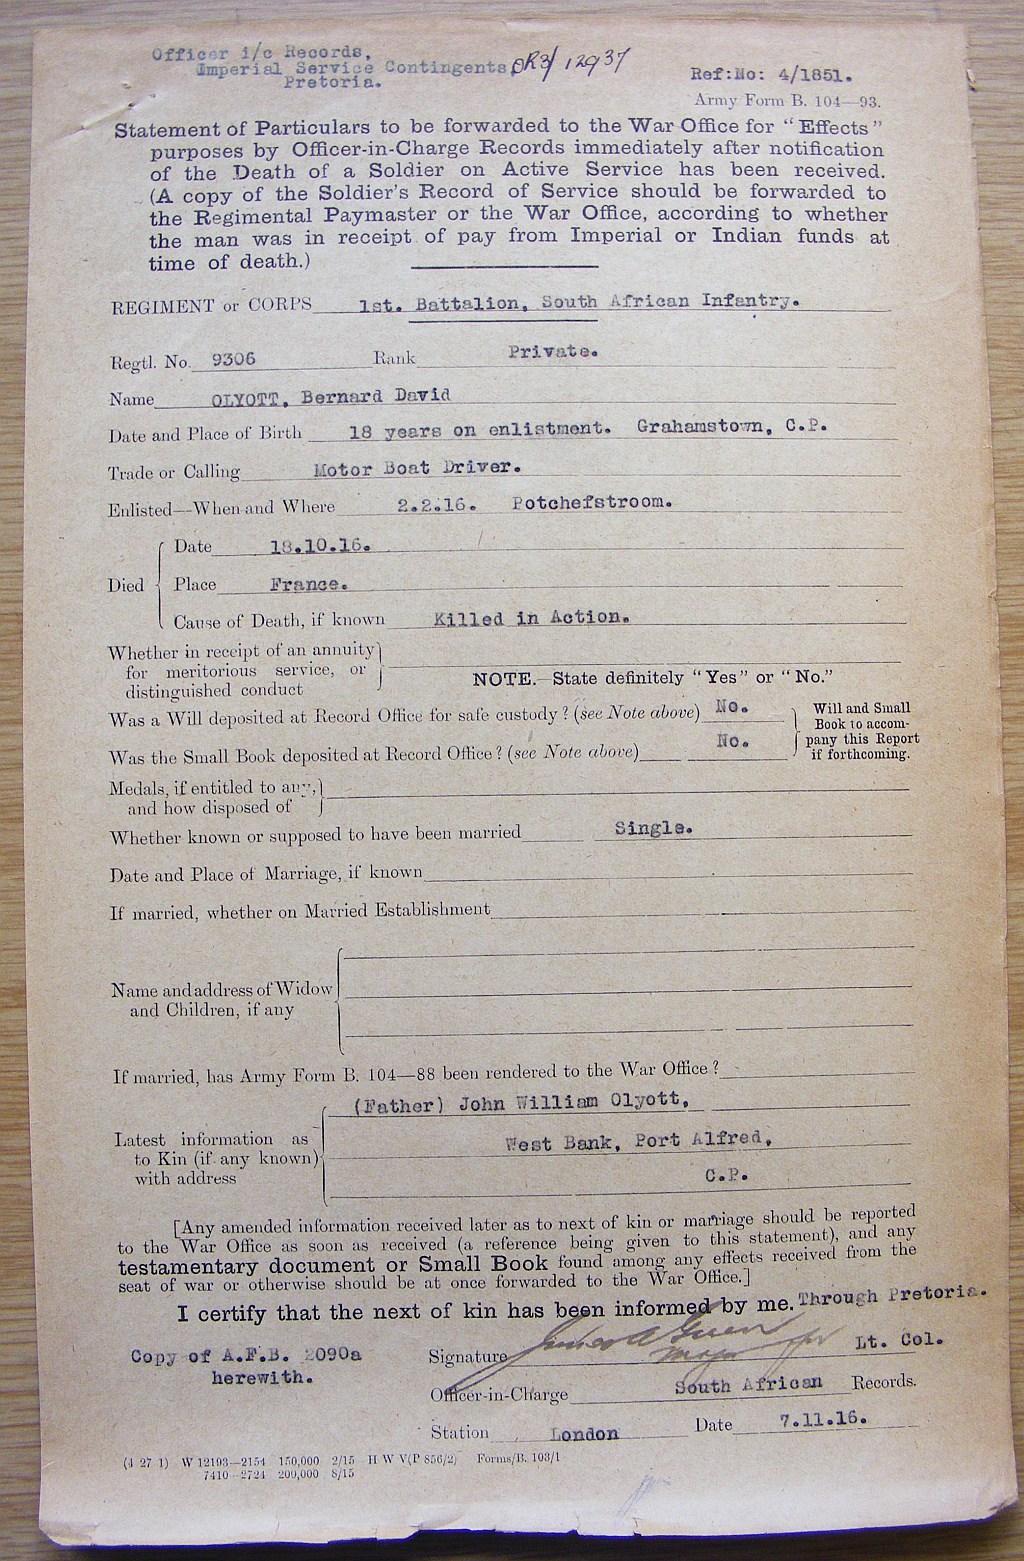 Officer i/c Records,
Imperial Service Contingents, OR3/12937
Pretoria.
Ref:No: 4/1851.
Army Form B. 104—93.
Statement of Particulars to be forwarded to the War Office for "Effects"
purposes by Officer-in-Charge Records immediately after notification
of the Death of a Soldier on Active Service has been received.
(A copy of the Soldier's Record of Service should be forwarded to
the Regimental Paymaster or the War Office, according to whether
the man was in receipt of pay from Imperial or Indian funds at
time of death.)
REGIMENT or CORPS 1st. Battalion, South African Infantry.
Regtl. No. 9306 Rank Private.
Name OLYOTT, Bernard David
Date and Place of Birth 18 years on enlistment. Grahamstown, C.P.
Trade or Calling Motor Boat Driver.
Enlisted—When and Where 2.2.16. Potchefstroom.
Date 18.10.16.
Died Place France.
Cause of Death, if known Killed in Action.
Whether in receipt of an annuity
for meritorious service, or
distinguished conduct
NOTE.—State definitely "Yes" or "No."
Was a Will deposited at Record Office for safe custody? (see Note above) No.
Was the Small Book deposited at Record Office? (see Note above) No.
Will and Small
Book to accom-
pany this Report
if forthcoming.
Medals, if entitled to any,
and how disposed of
Whether known or supposed to have been married Single.
Date and Place of Marriage, if known
If married, whether on Married Establishment
Name and address of Widow
and Children, if any
If married, has Army Form B. 104—88 been rendered to the War Office?
(Father) John William Olyott,
Latest information as
to Kin (if any known)
with address
West Bank, Port Alfred,
C.P.
[Any amended information received later as to next of kin or marriage should be reported
to the War Office as soon as received (a reference being given to this statement), and any
testamentary document or Small Book found among any effects received from the
seat of war or otherwise should be at once forwarded to the War Office.]
I certify that the next of kin has been informed by me. Through Pretoria.
Copy of A.F.B. 2090a
herewith.
Signature Major for Lt. Col.
Officer-in-Charge South African Records.
Station London Date 7.11.16.
(4 27 1) W 12193—2154 150,000 2/15 H W V(P 856/2) Forms/B. 103/1
7410—2724 200,000 8/15